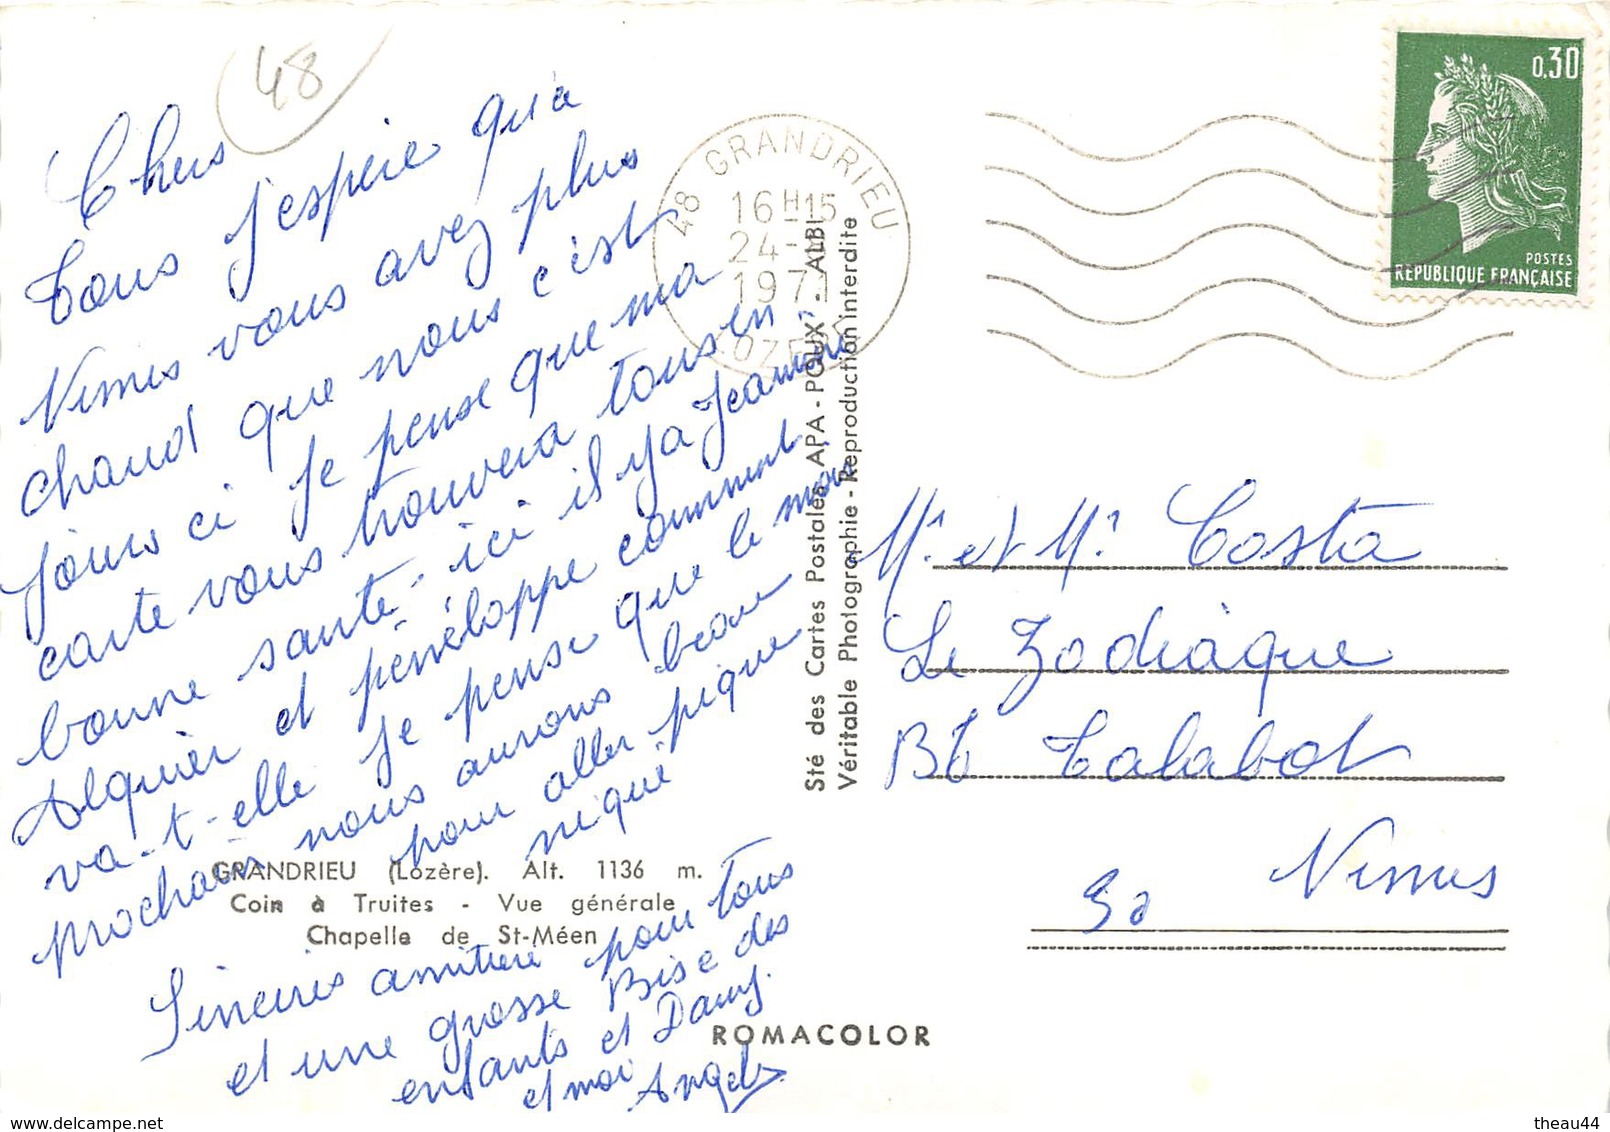 48
Chers
Tous j'espère qu'à
Nimes vous avez plus
chaud que nous c'est
jours ci je pense que ma
carte vous trouvera tous en
bonne santé - ici il y a Jeannine
Alquier et pénéloppe comment
va-t-elle je pense que le mois
prochain nous aurons beau
pour aller pique
nique
Sincères amitiés pour tous
et une grosse Bise des
enfants et Dany.
et moi Angel
GRANDRIEU (Lozère). Alt. 1136 m.
Coin à Truites - Vue générale
Chapelle de St-Méen
ROMACOLOR
Sté des Cartes Postales APA - POUX - ALBI
Véritable Photographie - Reproduction interdite
48 GRANDRIEU
16H15
24 -
1971
LOZERE
0,30
POSTES
REPUBLIQUE FRANÇAISE
Mr et Mr Costa
Le Zodiàque
Bt Talabot
30 Nimes
theau44